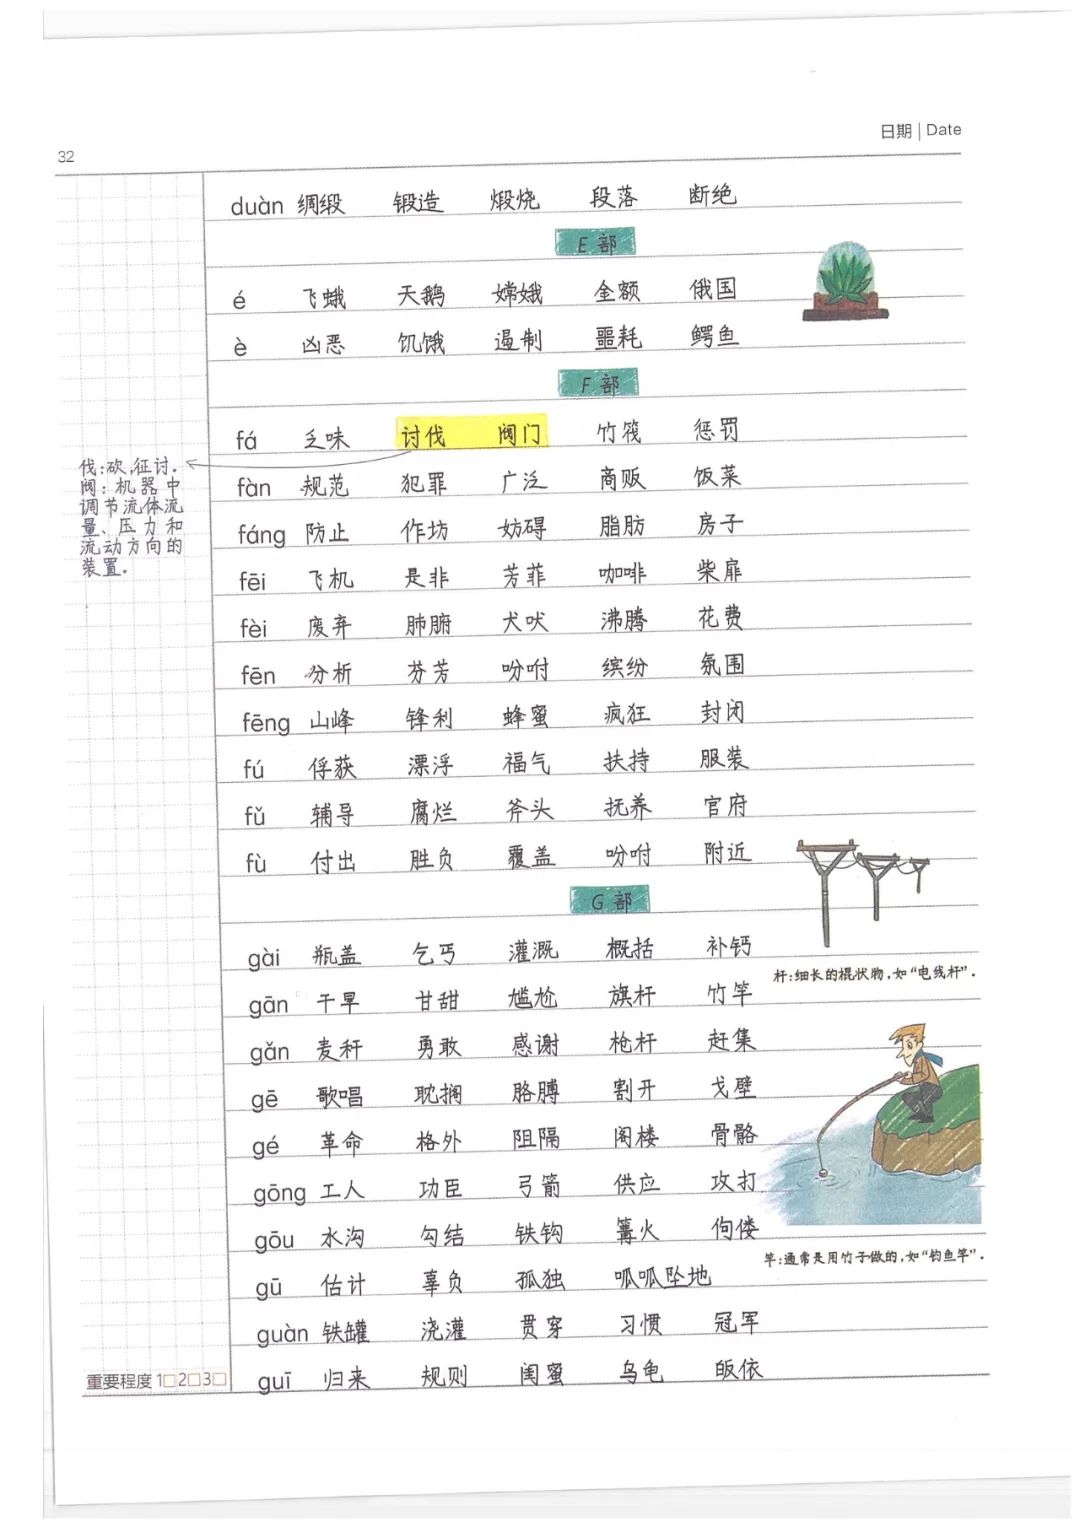 日期 | Date
32
duàn 绸缎 锻造 煅烧 段落 断绝
E 部
é 飞蛾 天鹅 嫦娥 金额 俄国
è 凶恶 饥饿 遏制 噩耗 鳄鱼
F 部
fá 乏味 讨伐 阀门 竹筏 惩罚
伐:砍,征讨。
阀:机器中
调节流体流
量、压力和
流动方向的
装置。
fàn 规范 犯罪 广泛 商贩 饭菜
fáng 防止 作坊 妨碍 脂肪 房子
fēi 飞机 是非 芳菲 咖啡 柴扉
fèi 废弃 肺腑 犬吠 沸腾 花费
fēn 分析 芬芳 吩咐 缤纷 氛围
fēng 山峰 锋利 蜂蜜 疯狂 封闭
fú 俘获 漂浮 福气 扶持 服装
fǔ 辅导 腐烂 斧头 抚养 官府
fù 付出 胜负 覆盖 吩咐 附近
G 部
gài 瓶盖 乞丐 灌溉 概括 补钙
杆:细长的棍状物,如“电线杆”。
gān 干旱 甘甜 尴尬 旗杆 竹竿
gǎn 麦秆 勇敢 感谢 枪杆 赶集
gē 歌唱 耽搁 胳膊 割开 戈壁
gé 革命 格外 阻隔 阁楼 骨骼
gōng 工人 功臣 弓箭 供应 攻打
gōu 水沟 勾结 铁钩 篝火 佝偻
竿:通常是用竹子做的,如“钓鱼竿”。
gū 估计 辜负 孤独 呱呱坠地
guàn 铁罐 浇灌 贯穿 习惯 冠军
guī 归来 规则 闺蜜 乌龟 皈依
重要程度 1□2□3□